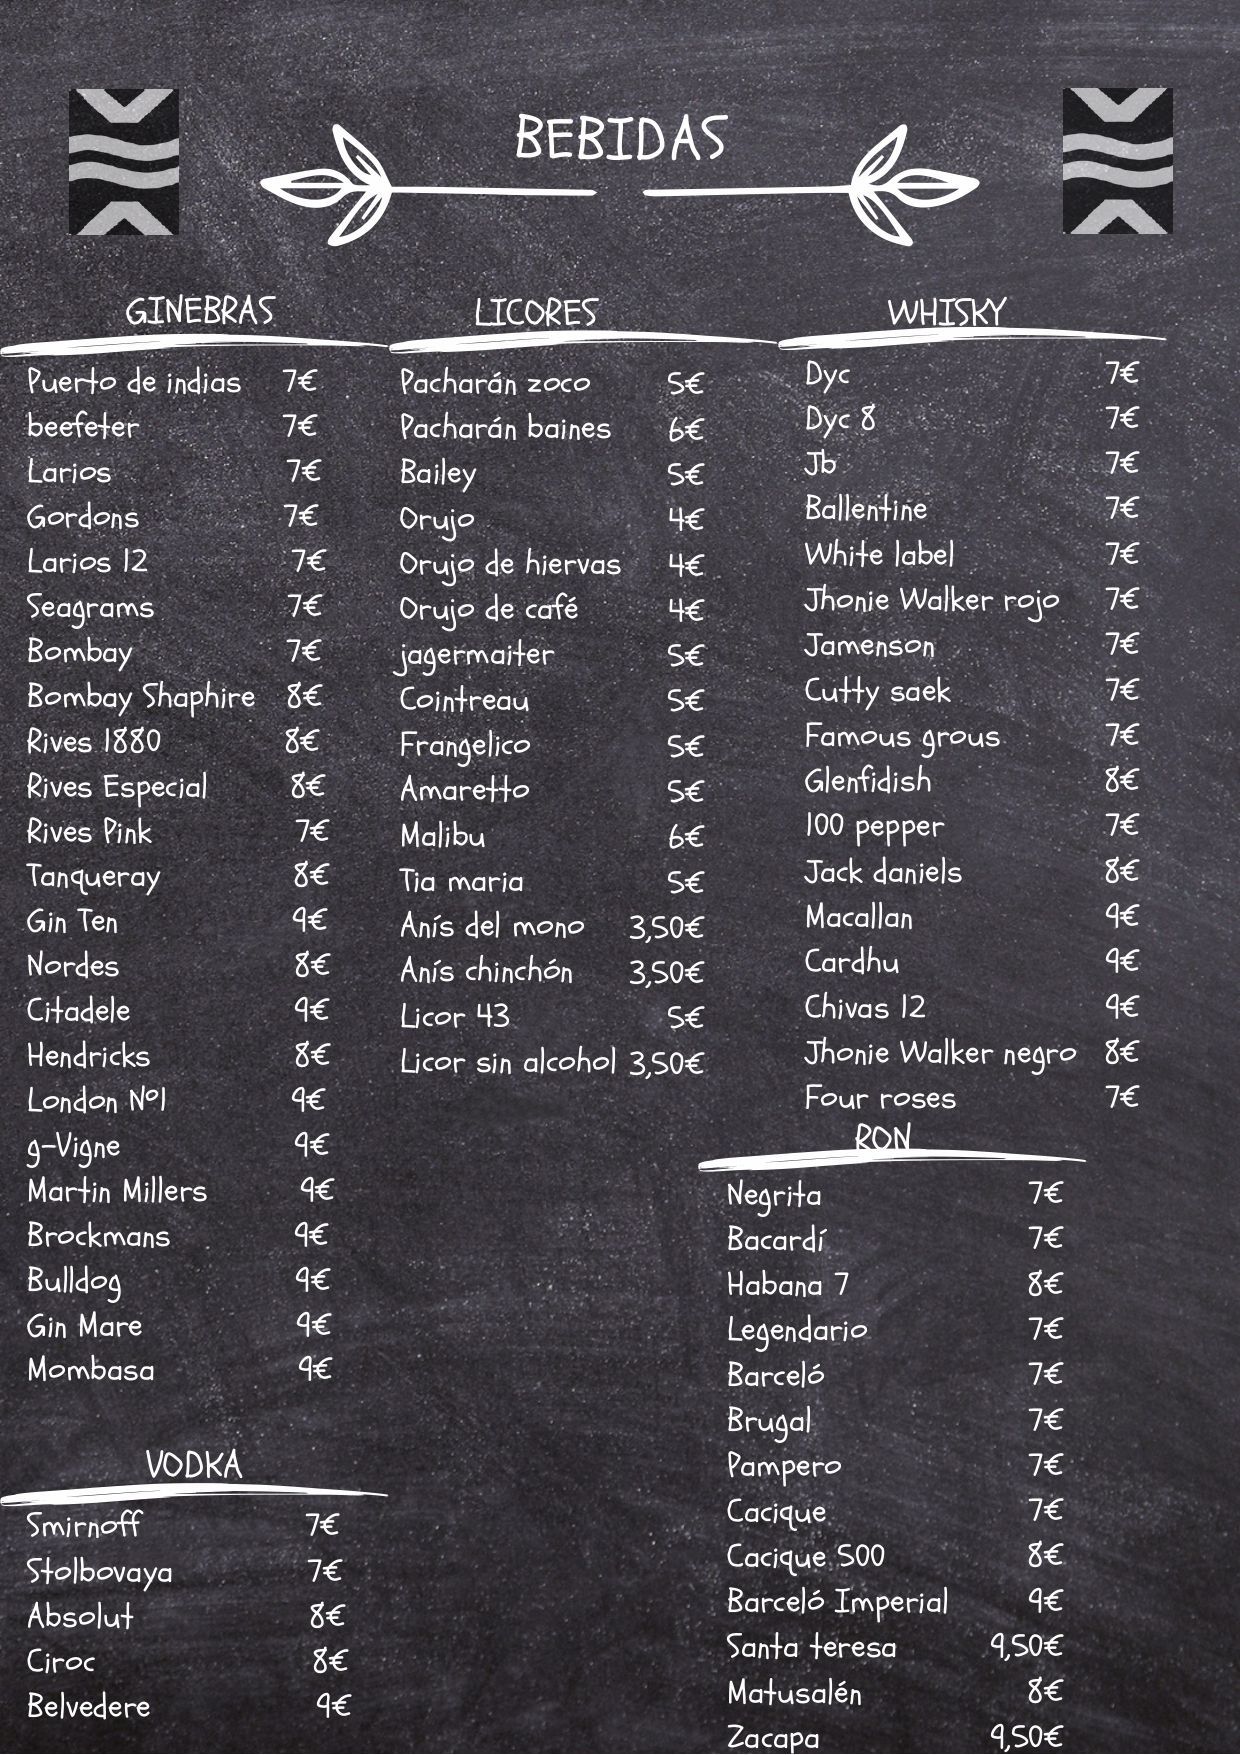 BEBIDAS
GINEBRAS
Puerto de indias 7€
beefeter 7€
Larios 7€
Gordons 7€
Larios 12 7€
Seagrams 7€
Bombay 7€
Bombay Shaphire 8€
Rives 1880 8€
Rives Especial 8€
Rives Pink 7€
Tanqueray 8€
Gin Ten 9€
Nordes 8€
Citadele 9€
Hendricks 8€
London Nº1 9€
g-Vigne 9€
Martin Millers 9€
Brockmans 9€
Bulldog 9€
Gin Mare 9€
Mombasa 9€
VODKA
Smirnoff 7€
Stolbovaya 7€
Absolut 8€
Ciroc 8€
Belvedere 9€
LICORES
Pacharán zoco 5€
Pacharán baines 6€
Bailey 5€
Orujo 4€
Orujo de hiervas 4€
Orujo de café 4€
jagermaiter 5€
Cointreau 5€
Frangelico 5€
Amaretto 5€
Malibu 6€
Tia maria 5€
Anís del mono 3,50€
Anís chinchón 3,50€
Licor 43 5€
Licor sin alcohol 3,50€
WHISKY
Dyc 7€
Dyc 8 7€
Jb 7€
Ballentine 7€
White label 7€
Jhonie Walker rojo 7€
Jamenson 7€
Cutty saek 7€
Famous grous 7€
Glenfidish 8€
100 pepper 7€
Jack daniels 8€
Macallan 9€
Cardhu 9€
Chivas 12 9€
Jhonie Walker negro 8€
Four roses 7€
RON
Negrita 7€
Bacardí 7€
Habana 7 8€
Legendario 7€
Barceló 7€
Brugal 7€
Pampero 7€
Cacique 7€
Cacique 500 8€
Barceló Imperial 9€
Santa teresa 9,50€
Matusalén 8€
Zacapa 9,50€